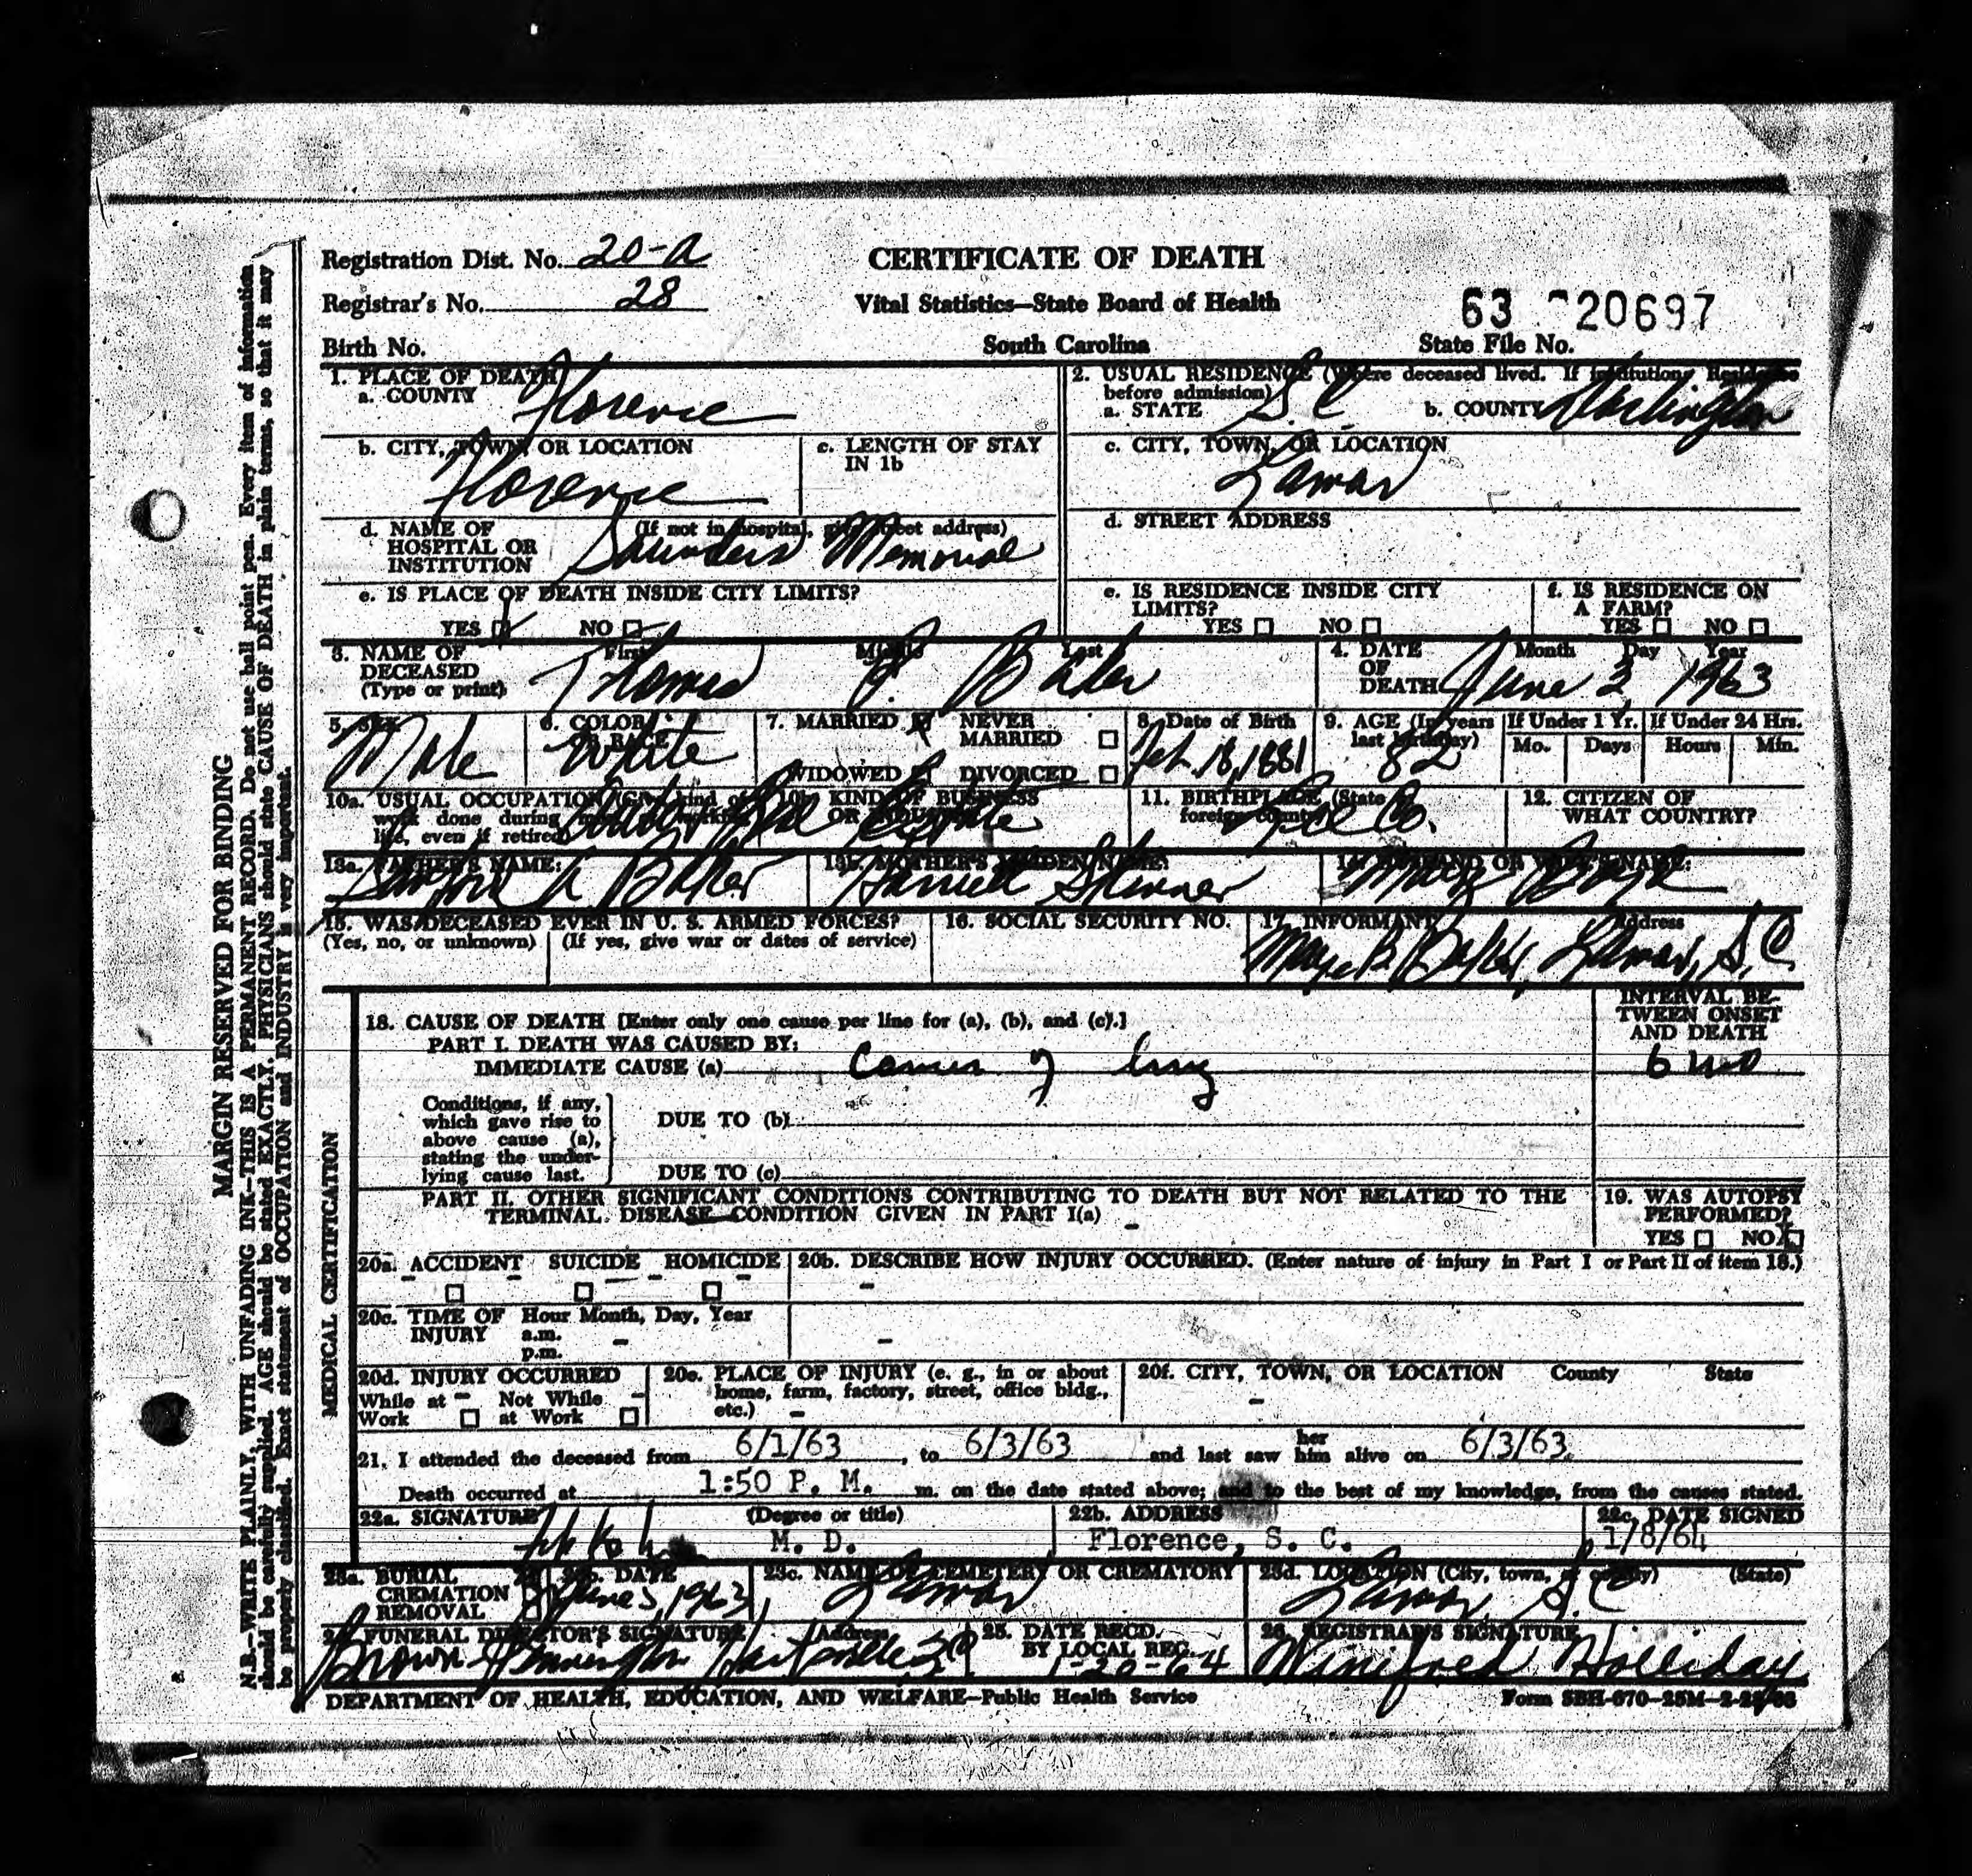 Registration Dist. No. 20-A
CERTIFICATE OF DEATH
Registrar's No. 28
Vital Statistics—State Board of Health
63 20697
Birth No.
South Carolina
State File No.
1. PLACE OF DEATH
a. COUNTY Florence
2. USUAL RESIDENCE (Where deceased lived. If institution: Residence before admission)
a. STATE S. C. b. COUNTY Darlington
b. CITY, TOWN OR LOCATION
Florence
c. LENGTH OF STAY IN 1b
c. CITY, TOWN, OR LOCATION
Lamar
d. NAME OF HOSPITAL OR INSTITUTION (If not in hospital, give street address)
Saunders Memorial
d. STREET ADDRESS
e. IS PLACE OF DEATH INSIDE CITY LIMITS?
YES NO
e. IS RESIDENCE INSIDE CITY LIMITS?
YES NO
f. IS RESIDENCE ON A FARM?
YES NO
3. NAME OF DECEASED (Type or print)
First Middle Last
Thomas P. Baker
4. DATE OF DEATH Month Day Year
June 3, 1963
5. SEX
Male
6. COLOR OR RACE
White
7. MARRIED NEVER MARRIED
WIDOWED DIVORCED
8. Date of Birth
Feb. 18, 1881
9. AGE (In years last birthday)
82
If Under 1 Yr. If Under 24 Hrs.
Mo. Days Hours Min.
10a. USUAL OCCUPATION (Give kind of work done during most of working life, even if retired)
10b. KIND OF BUSINESS OR INDUSTRY
Real Estate
11. BIRTHPLACE (State or foreign country)
Lee Co.
12. CITIZEN OF WHAT COUNTRY?
13a. FATHER'S NAME:
A Baker
13b. MOTHER'S MAIDEN NAME:
Harriett Skinner
14. HUSBAND OR WIFE'S NAME:
15. WAS DECEASED EVER IN U. S. ARMED FORCES?
(Yes, no, or unknown) (If yes, give war or dates of service)
16. SOCIAL SECURITY NO.
17. INFORMANT Address
B. Baker, Lamar, S. C.
MEDICAL CERTIFICATION
18. CAUSE OF DEATH [Enter only one cause per line for (a), (b), and (c).]
INTERVAL BETWEEN ONSET AND DEATH
PART I. DEATH WAS CAUSED BY:
IMMEDIATE CAUSE (a) Cancer of lung
6 mo
Conditions, if any, which gave rise to above cause (a), stating the underlying cause last.
DUE TO (b)
DUE TO (c)
PART II. OTHER SIGNIFICANT CONDITIONS CONTRIBUTING TO DEATH BUT NOT RELATED TO THE TERMINAL DISEASE CONDITION GIVEN IN PART I(a)
19. WAS AUTOPSY PERFORMED?
YES NO X
20a. ACCIDENT SUICIDE HOMICIDE
20b. DESCRIBE HOW INJURY OCCURRED. (Enter nature of injury in Part I or Part II of item 18.)
20c. TIME OF INJURY Hour Month, Day, Year
a.m.
p.m.
20d. INJURY OCCURRED
While at Work Not While at Work
20e. PLACE OF INJURY (e. g., in or about home, farm, factory, street, office bldg., etc.)
20f. CITY, TOWN, OR LOCATION County State
21. I attended the deceased from 6/1/63, to 6/3/63 and last saw her him alive on 6/3/63.
Death occurred at 1:50 P. M. m. on the date stated above; and to the best of my knowledge, from the causes stated.
22a. SIGNATURE (Degree or title)
M. D.
22b. ADDRESS
Florence, S. C.
22c. DATE SIGNED
1/8/64
23a. BURIAL CREMATION REMOVAL
23b. DATE
June 5, 1963
23c. NAME OF CEMETERY OR CREMATORY
Lamar
23d. LOCATION (City, town, or county) (State)
Lamar, S. C.
24. FUNERAL DIRECTOR'S SIGNATURE Address
Brown-Pennington Hartsville SC
25. DATE RECD. BY LOCAL REG.
1-20-64
26. REGISTRAR'S SIGNATURE
Winifred Holliday
DEPARTMENT OF HEALTH, EDUCATION, AND WELFARE—Public Health Service
Form SBH-670-25M-2-
MARGIN RESERVED FOR BINDING
N.B.—WRITE PLAINLY, WITH UNFADING INK—THIS IS A PERMANENT RECORD. Do not use ball point pen. Every item of information
should be carefully supplied. AGE should be stated EXACTLY. PHYSICIANS should state CAUSE OF DEATH in plain terms, so that it may
be properly classified. Exact statement of OCCUPATION and INDUSTRY is very important.